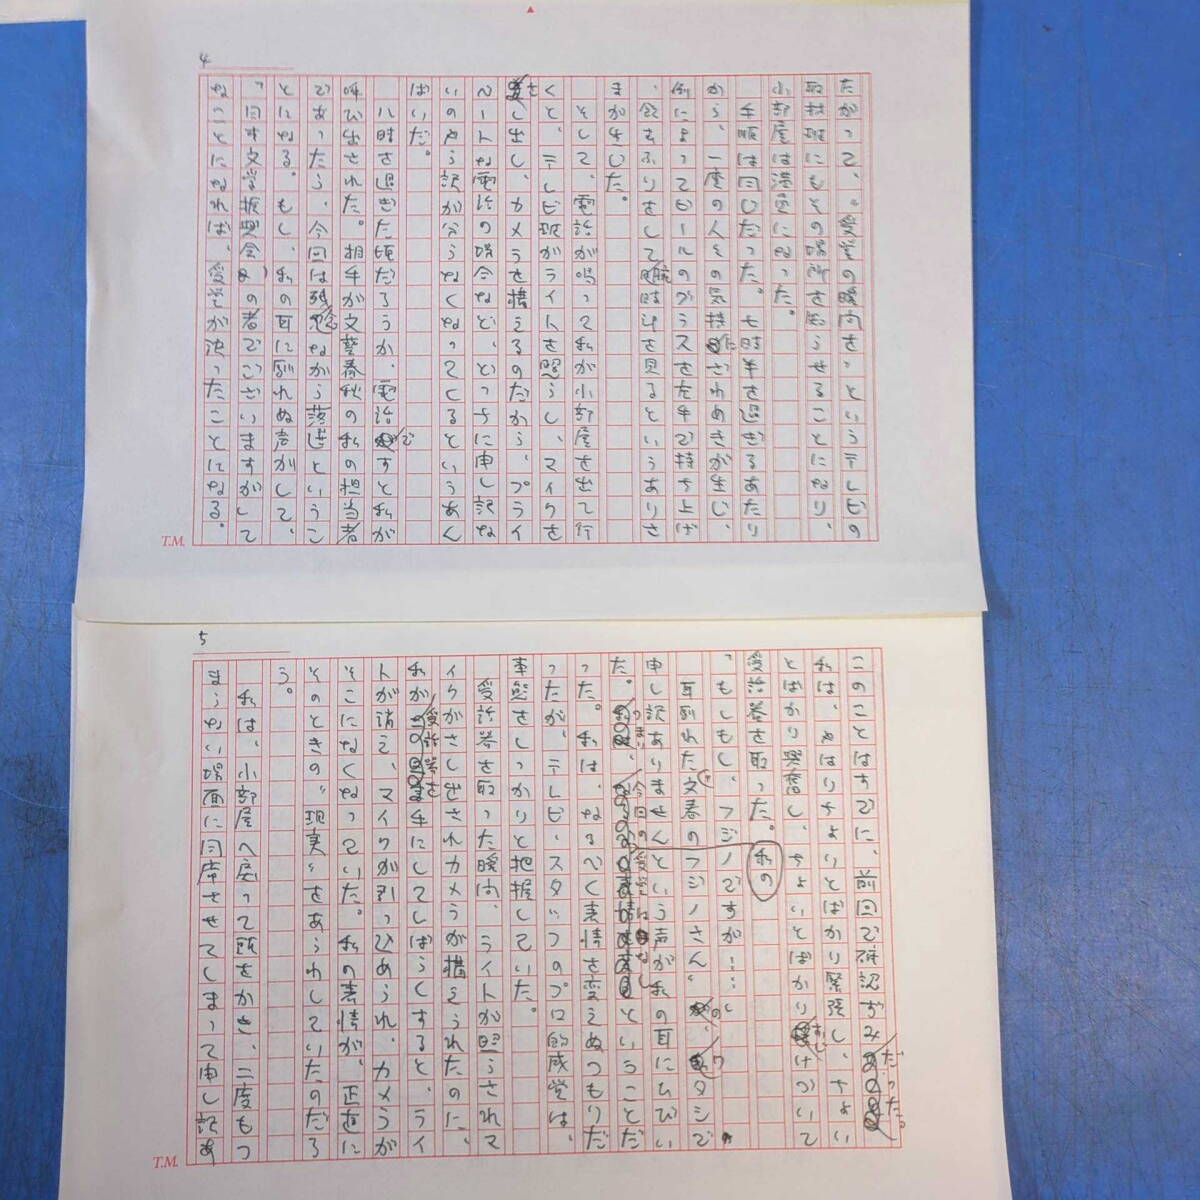 4
たがって、〝受賞の瞬間を〟というテレビの
取材班にもその場所を知らせることになり、
小部屋は満員になった。
手順は同じだった。七時半を過ぎるあたり
から、一座の人々の気持にざわめきが生じ、
例によってビールのグラスを左手で持ち上げ
、飲むふりをして腕時計を見るというありさ
まが生じた。
そして、電話が鳴って私が小部屋を出て行
くと、テレビ班がライトを照らし、マイクを
さし出し、カメラを構えるのだから、プライ
ベートな電話の場合など、とっさに申し訳な
いのやら訳が分らなくなってくるというあん
ばいだ。
八時を過ぎた頃だろうか、電話ですと私が
呼び出された。相手が文藝春秋の私の担当者
であったら、今回は残念ながら落選というこ
とになる。もし、私の耳に馴れぬ声がして、
「日本文学振興会の者でございますが」して
なことになれば、受賞が決ったことになる。
T.M.
5
このことはすでに、前回で確認ずみだった。
私は、やはりちょいとばかり緊張し、ちょい
とばかり興奮し、ちょいとばかりおじけづいて
受話器を取った。
「もしもし、フジノですが……」
私の耳馴れた〝文春のフジノさん〟の、ワタシで
申し訳ありませんという声が私の耳にひびい
た。つまり、今回の受賞はなしということだ
った。私は、なるべく表情を変えぬつもりだ
ったが、テレビ・スタッフのプロ的感覚は、
事態をしっかりと把握していた。
受話器を取った瞬間、ライトが照らされマ
イクがさし出されカメラが構えられたのに、
私が受話器を手にしてしばらくすると、ライ
トが消え、マイクが引っ込められ、カメラが
そこになくなっていた。私の表情が、正直に
そのときの〝現実〟をあらわしていたのだろ
う。
私は、小部屋へ戻って頭をかき、二度もつ
まらない場面に同席させてしまって申し訳あ
T.M.